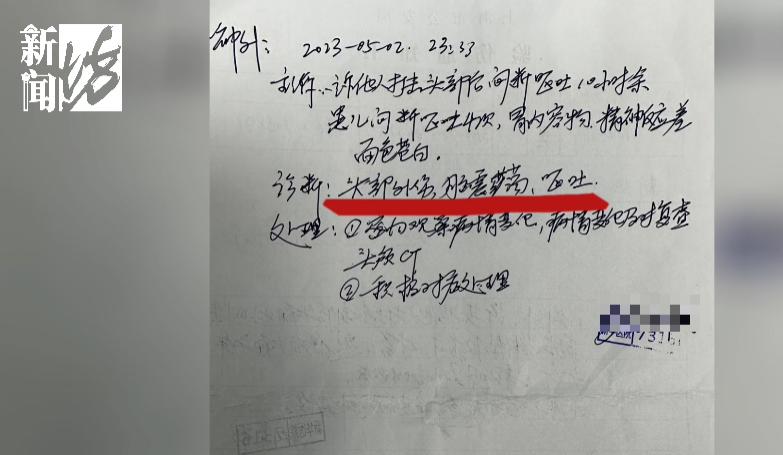 新闻坊
神外: 2023-05-02. 23:33
主诉: 诉他人打击头部后间断呕吐10小时余
患儿间断呕吐4次, 胃内容物. 精神反应差
面色苍白.
诊断: 头部外伤, 脑震荡, 呕吐.
处理: ①密切观察病情变化, 病情变化及时复查
头颅CT
②积极对症处理